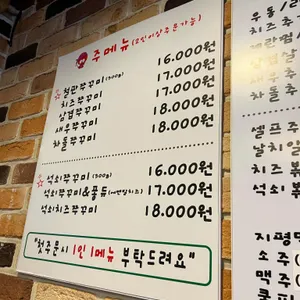 주메뉴 (2인이상주문가능)
☆ 철판쭈꾸미 (300g) 16.000원
치즈쭈꾸미 17.000원
삼겹쭈꾸미 17.000원
새우쭈꾸미 18.000원
차돌쭈꾸미 18.000원
☆ 석쇠쭈꾸미 (300g) 16.000원
석쇠쭈꾸미&퐁듀 17.000원
석쇠치즈쭈꾸미 18.000원
"첫주문시 1인 1메뉴 부탁드려요"
우동/
치즈추
계란찜/
삼겹살
새우추
차돌추
셀프주
날치알
치즈볶
석쇠
지평막
소주(
맥주(